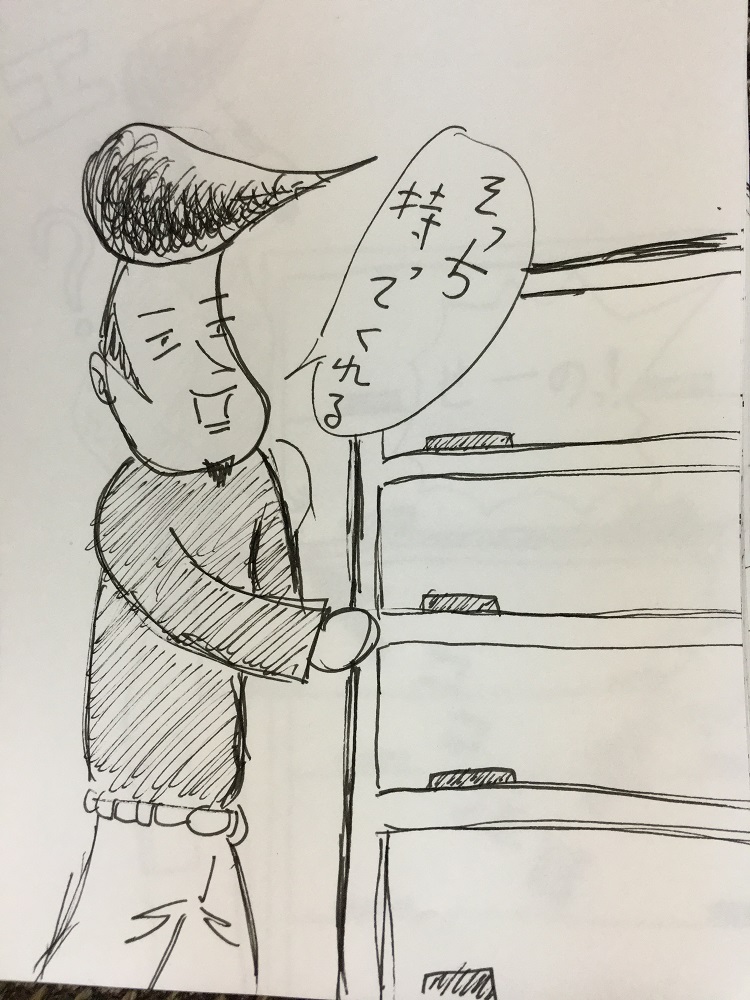 そっち
持ってくれる